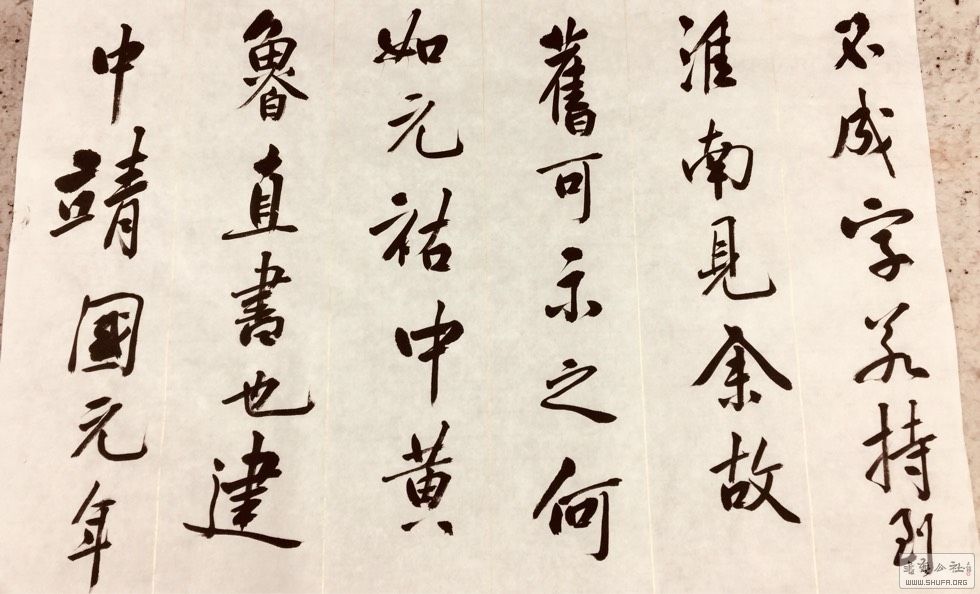 不成字若持到
淮南見余故
舊可示之何
如元祐中黃
魯直書也建
中靖國元年
書法公社
WWW.SHUFA.ORG